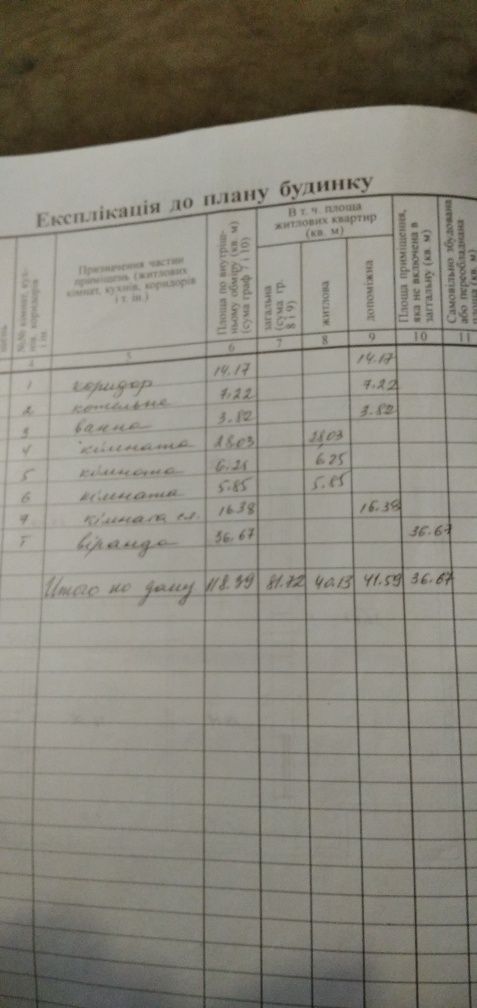 Експлікація до плану будинку
№№ кімнат, кухонь, коридорів і ін.
Призначення частин приміщень (житлових кімнат, кухнів, коридорів і т. ін.)
Площа по внутрішньому обміру (кв. м) (сума граф 7 і 10)
В т. ч. площа житлових квартир (кв. м)
загальна (сума гр. 8 і 9)
житлова
допоміжна
Площа приміщення, яка не включена в загальну (кв. м)
Самовільно збудована або переобладнана площа (кв. м)
5 6 7 8 9 10 11
1 коридор 14.17 14.17
2 котельна 7.22 7.22
3 ванна 3.82 3.82
4 кімната 28.03 28.03
5 кімната 6.25 6.25
6 кімната 5.85 5.85
7 кімната 16.38 16.38
І віранда 36.67 36.67
Итого по дому 118.39 81.72 40.13 41.59 36.67